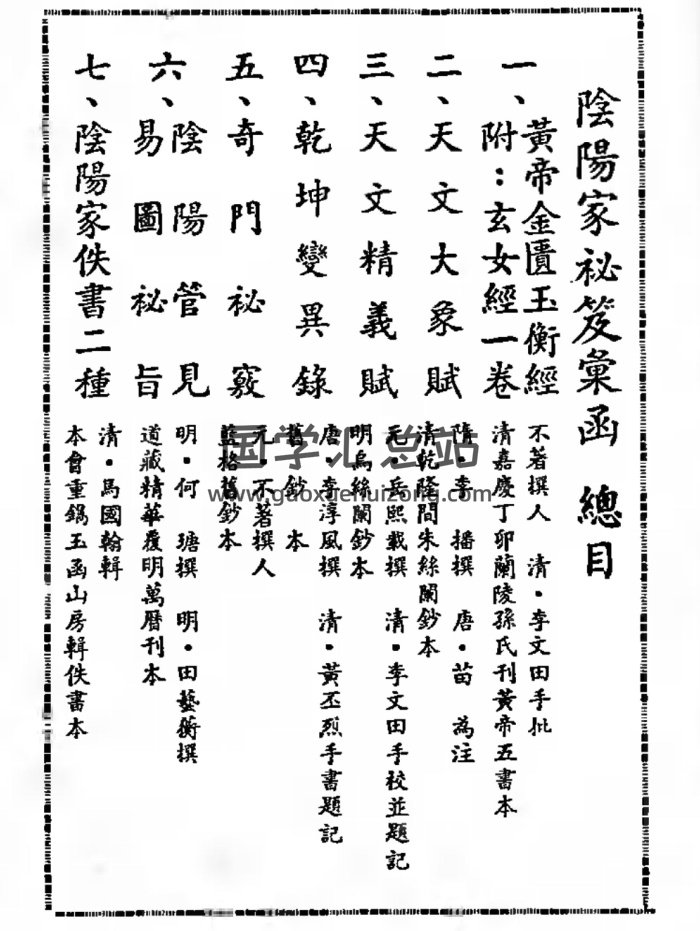 陰陽家祕笈彙函 總目
一、黃帝金匱玉衡經
附：玄女經一卷
不著撰人 清·李文田手批
清嘉慶丁卯蘭陵孫氏刊黃帝五書本
二、天文大象賦
隋·李 播撰 唐·苗 為注
清乾隆間朱絲闌鈔本
三、天文精義賦
元·岳熙載撰 清·李文田手校並題記
明烏絲闌鈔本
四、乾坤變異錄
唐·李淳風撰 清·黃丕烈手書題記
舊鈔本
五、奇門祕竅
元·不著撰人
藍格舊鈔本
六、陰陽管見
易圖祕旨
明·何 瑭撰 明·田藝蘅撰
道藏精華覆明萬曆刊本
七、陰陽家佚書二種
清·馬國翰輯
本會重鐫玉函山房輯佚書本
国学汇总站
www.guoxuehuizong.com